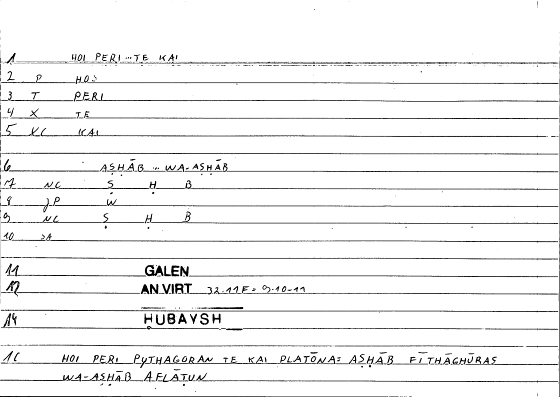 1 HOI PERI...TE KAI
2 P HOI
3 T PERI
4 X TE
5 XC KAI
6 AṢḤĀB ... WA-AṢḤĀB
7 NC Ṣ Ḥ B
8 JP W
9 NC Ṣ Ḥ B
10 =A
11 GALEN
12 AN.VIRT 32.11F = 9.10-11
14 HUBAYSH
16 HOI PERI PYTHAGORAN TE KAI PLATŌNA= AṢḤĀB FĪTHĀGHŪRAS
WA-AṢḤĀB AFLĀṬUN